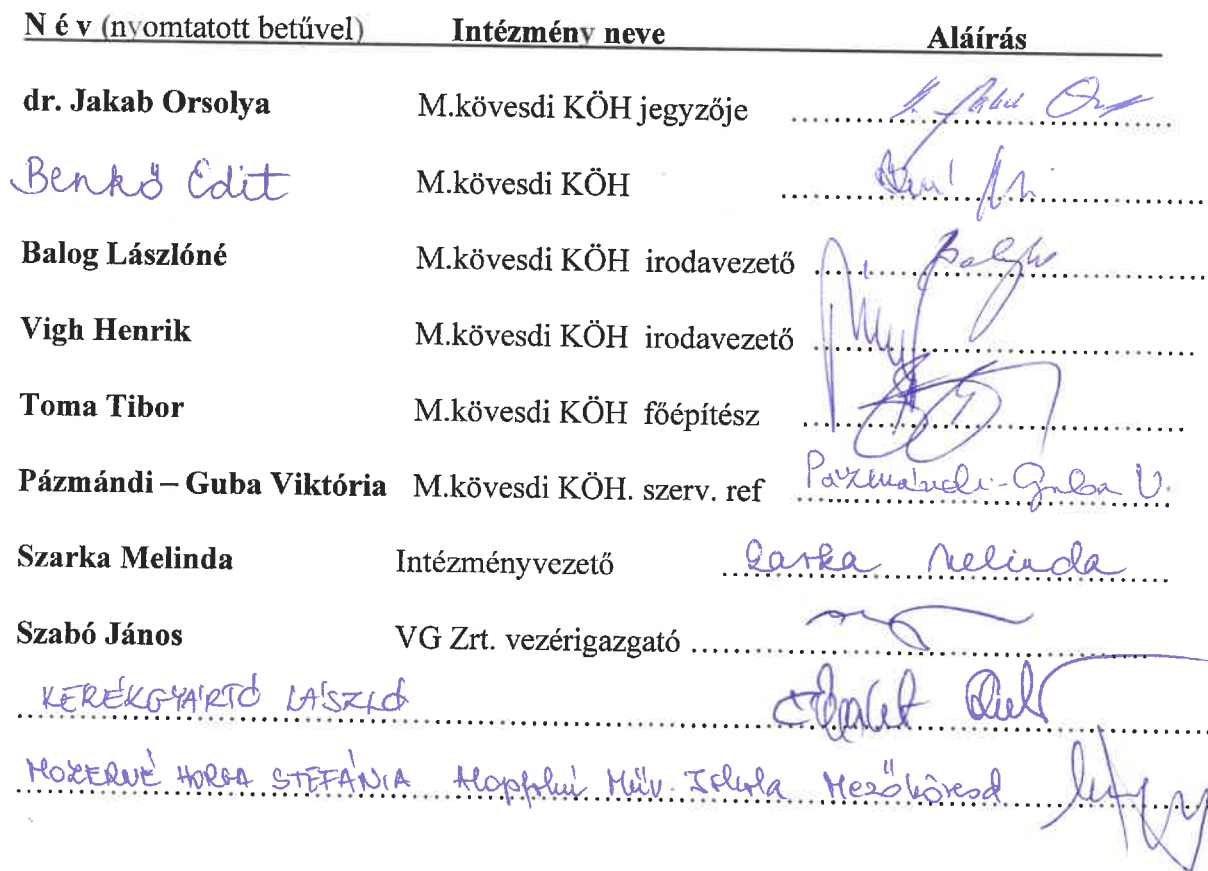 N é v (nyomtatott betűvel) Intézmény neve Aláírás
dr. Jakab Orsolya M.kövesdi KÖH jegyzője
Benkő Edit M.kövesdi KÖH
Balog Lászlóné M.kövesdi KÖH irodavezető
Vigh Henrik M.kövesdi KÖH irodavezető
Toma Tibor M.kövesdi KÖH főépítész
Pázmándi – Guba Viktória M.kövesdi KÖH. szerv. ref Pázmándi-Guba V.
Szarka Melinda Intézményvezető Szarka Melinda
Szabó János VG Zrt. vezérigazgató
KERÉKGYÁRTÓ LÁSZLÓ
STEFÁNIA Alapfokú Műv. Iskola Mezőkövesd